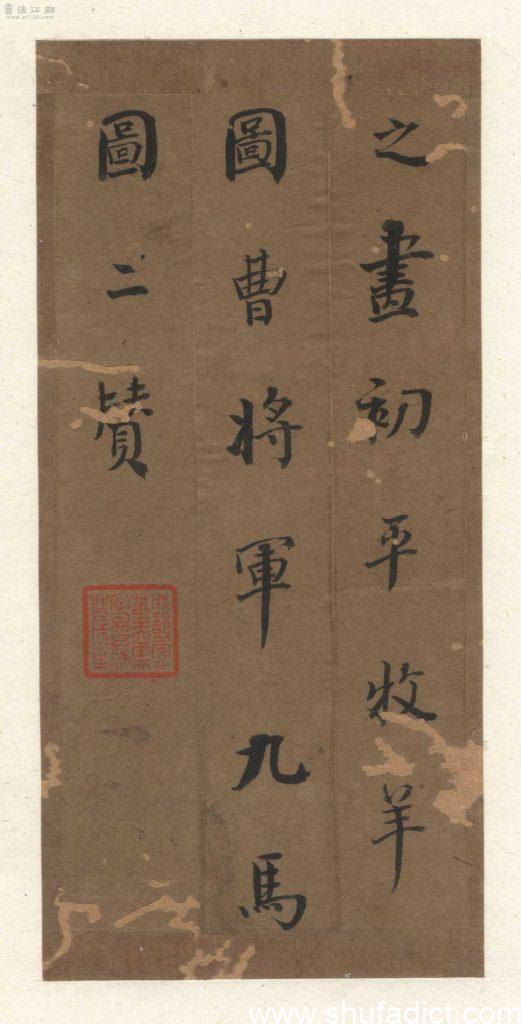 書法江湖
之畫初平牧羊
圖曹将軍九馬
圖二贊
www.shufadict.com